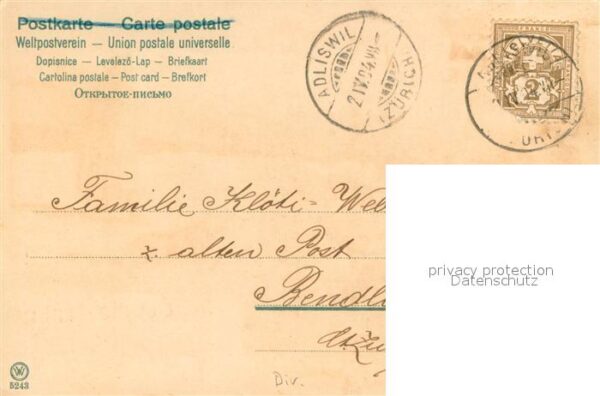 Postkarte — Carte postale
Weltpostverein — Union postale universelle
Dopisnice — Levelező-Lap — Briefkaart
Cartolina postale — Post card — Brefkort
Открытое-письмо
ADLISWIL
2 IV. 04. VII
(ZÜRICH)
FRANCO
2
Familie Klöti-Wel
z. alten Post
Bendl
privacy protection
Datenschutz
W
5243
Div.